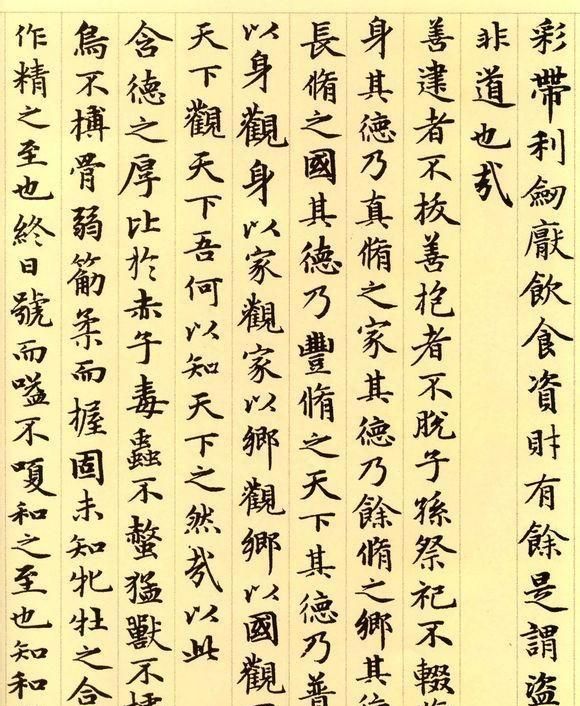 彩帶利劒厭飲食資財有餘是謂盜
非道也哉
善建者不拔善抱者不脫子孫祭祀不輟
身其德乃真脩之家其德乃餘脩之鄉其德
長脩之國其德乃豐脩之天下其德乃普
以身觀身以家觀家以鄉觀鄉以國觀
天下觀天下吾何以知天下之然哉以此
含德之厚比於赤子毒蟲不螫猛獸不據
鳥不搏骨弱筋柔而握固未知牝牡之合
作精之至也終日號而嗌不嗄和之至也知和